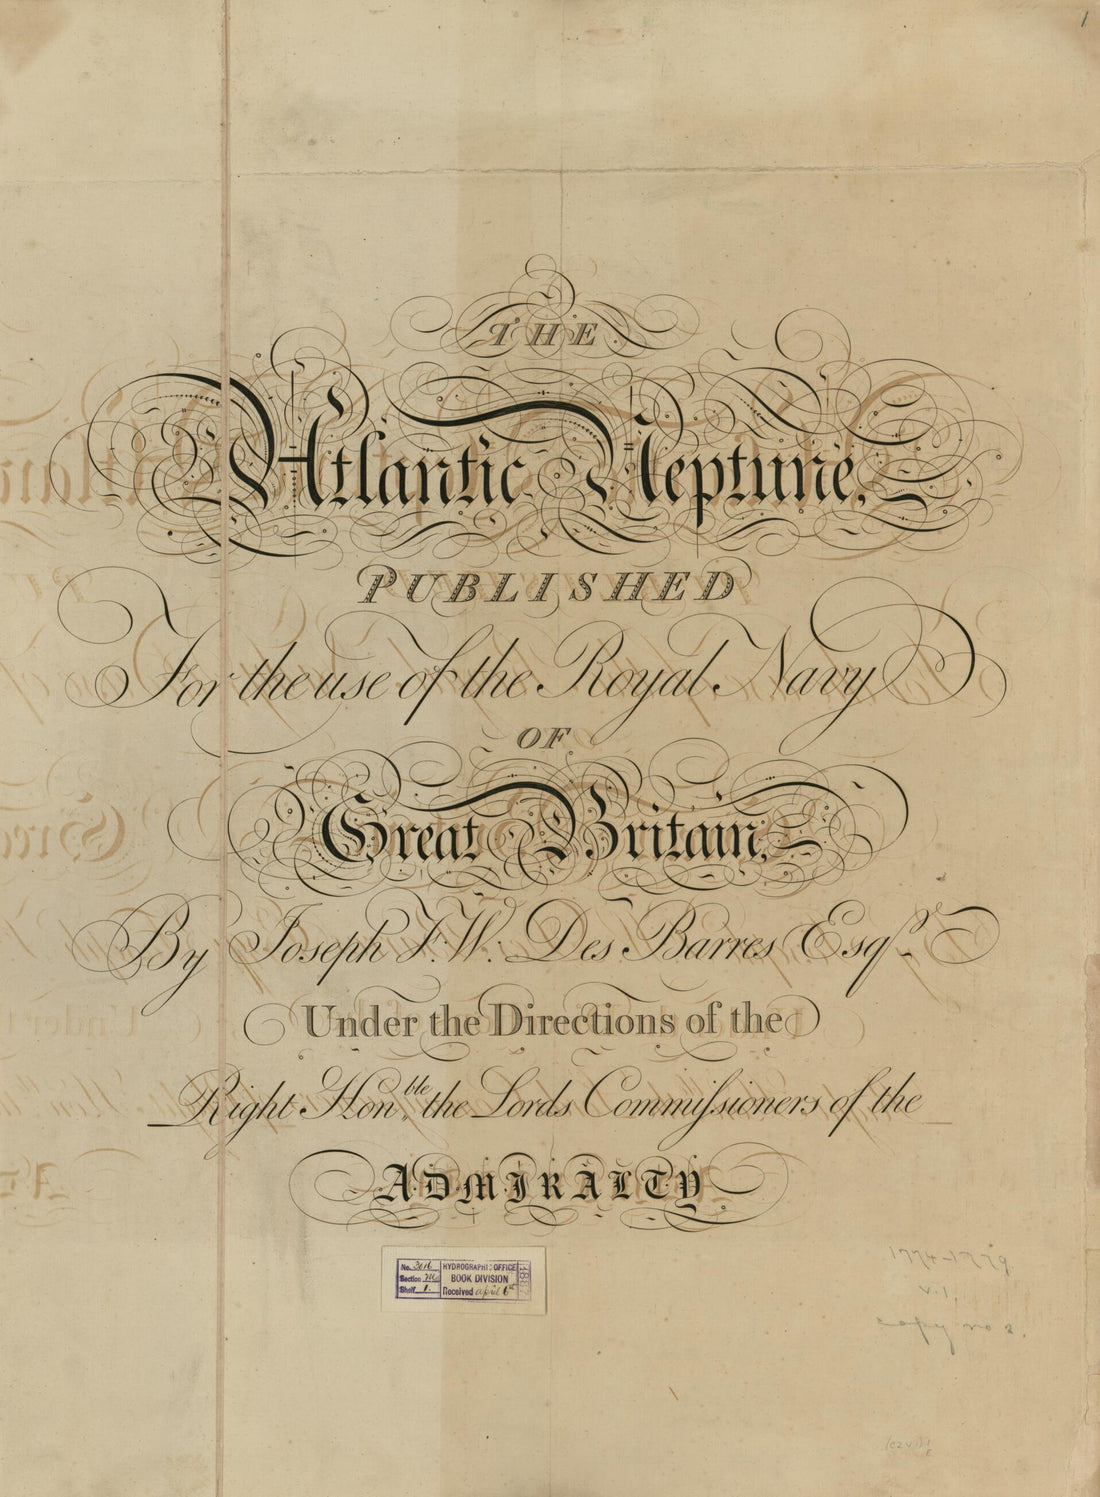 1
THE
Atlantic Neptune,
PUBLISHED
For the use of the Royal Navy
OF
Great Britain,
By Joseph F. W. Des Barres Esqr.
Under the Directions of the
Right Honble. the Lords Commiſsioners of the
ADMIRALTY
No. HYDROGRAPHIC OFFICE
Section BOOK DIVISION
Shelf 1. Received April 6th
1774-1779
v.1,
copy no 2.